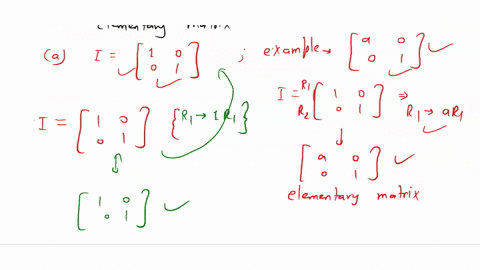 elementary matrix
(a) I = [ 1 0
0 1 ] ; example → [ a 0
0 1 ]
I = [ 1 0
0 1 ] { R1 → 1R1 }
[ 1 0
0 1 ]
I = R1 [ 1 0
R2 0 1 ] ⇒
R1 → aR1
[ a 0
0 1 ]
elementary matrix